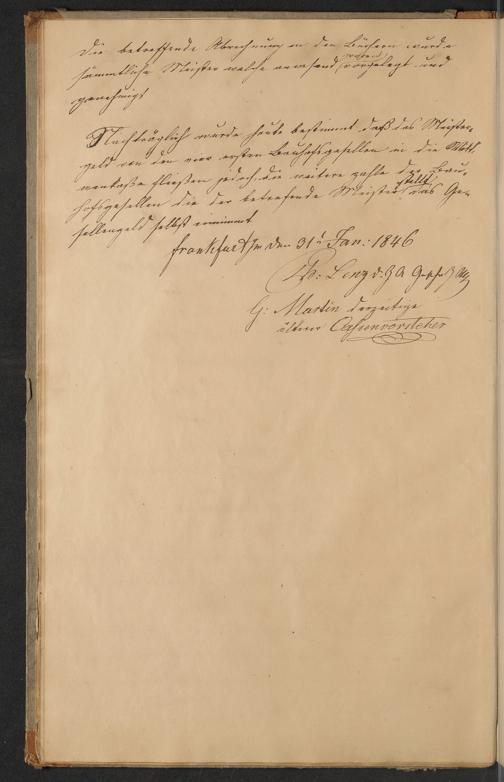 Die betreffende Abrechnung in den Büchern wurde
sämmtliche Meister welche anwesend waren vorgelegt und
genehmigt
Nachträglich wurde heute bestimmt daß das Meister-
geld von den vier ersten Bauhofsgesellen in die Meth
menkaße fließen jedoch die weitere zahle der Bau-
hofsgesellen die der betrefende Meister stellt das Ge-
sellengeld selbst einnimmt
Frankfurt /m den 31t Jan: 1846
W: Lenz d: Z
G: Martin derzeitige
älterer Cassenvorsteher